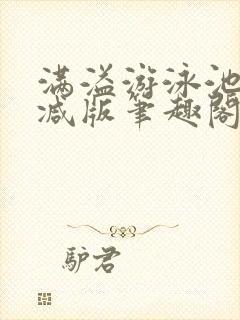 满溢游泳池
减版笔趣阁
驴君